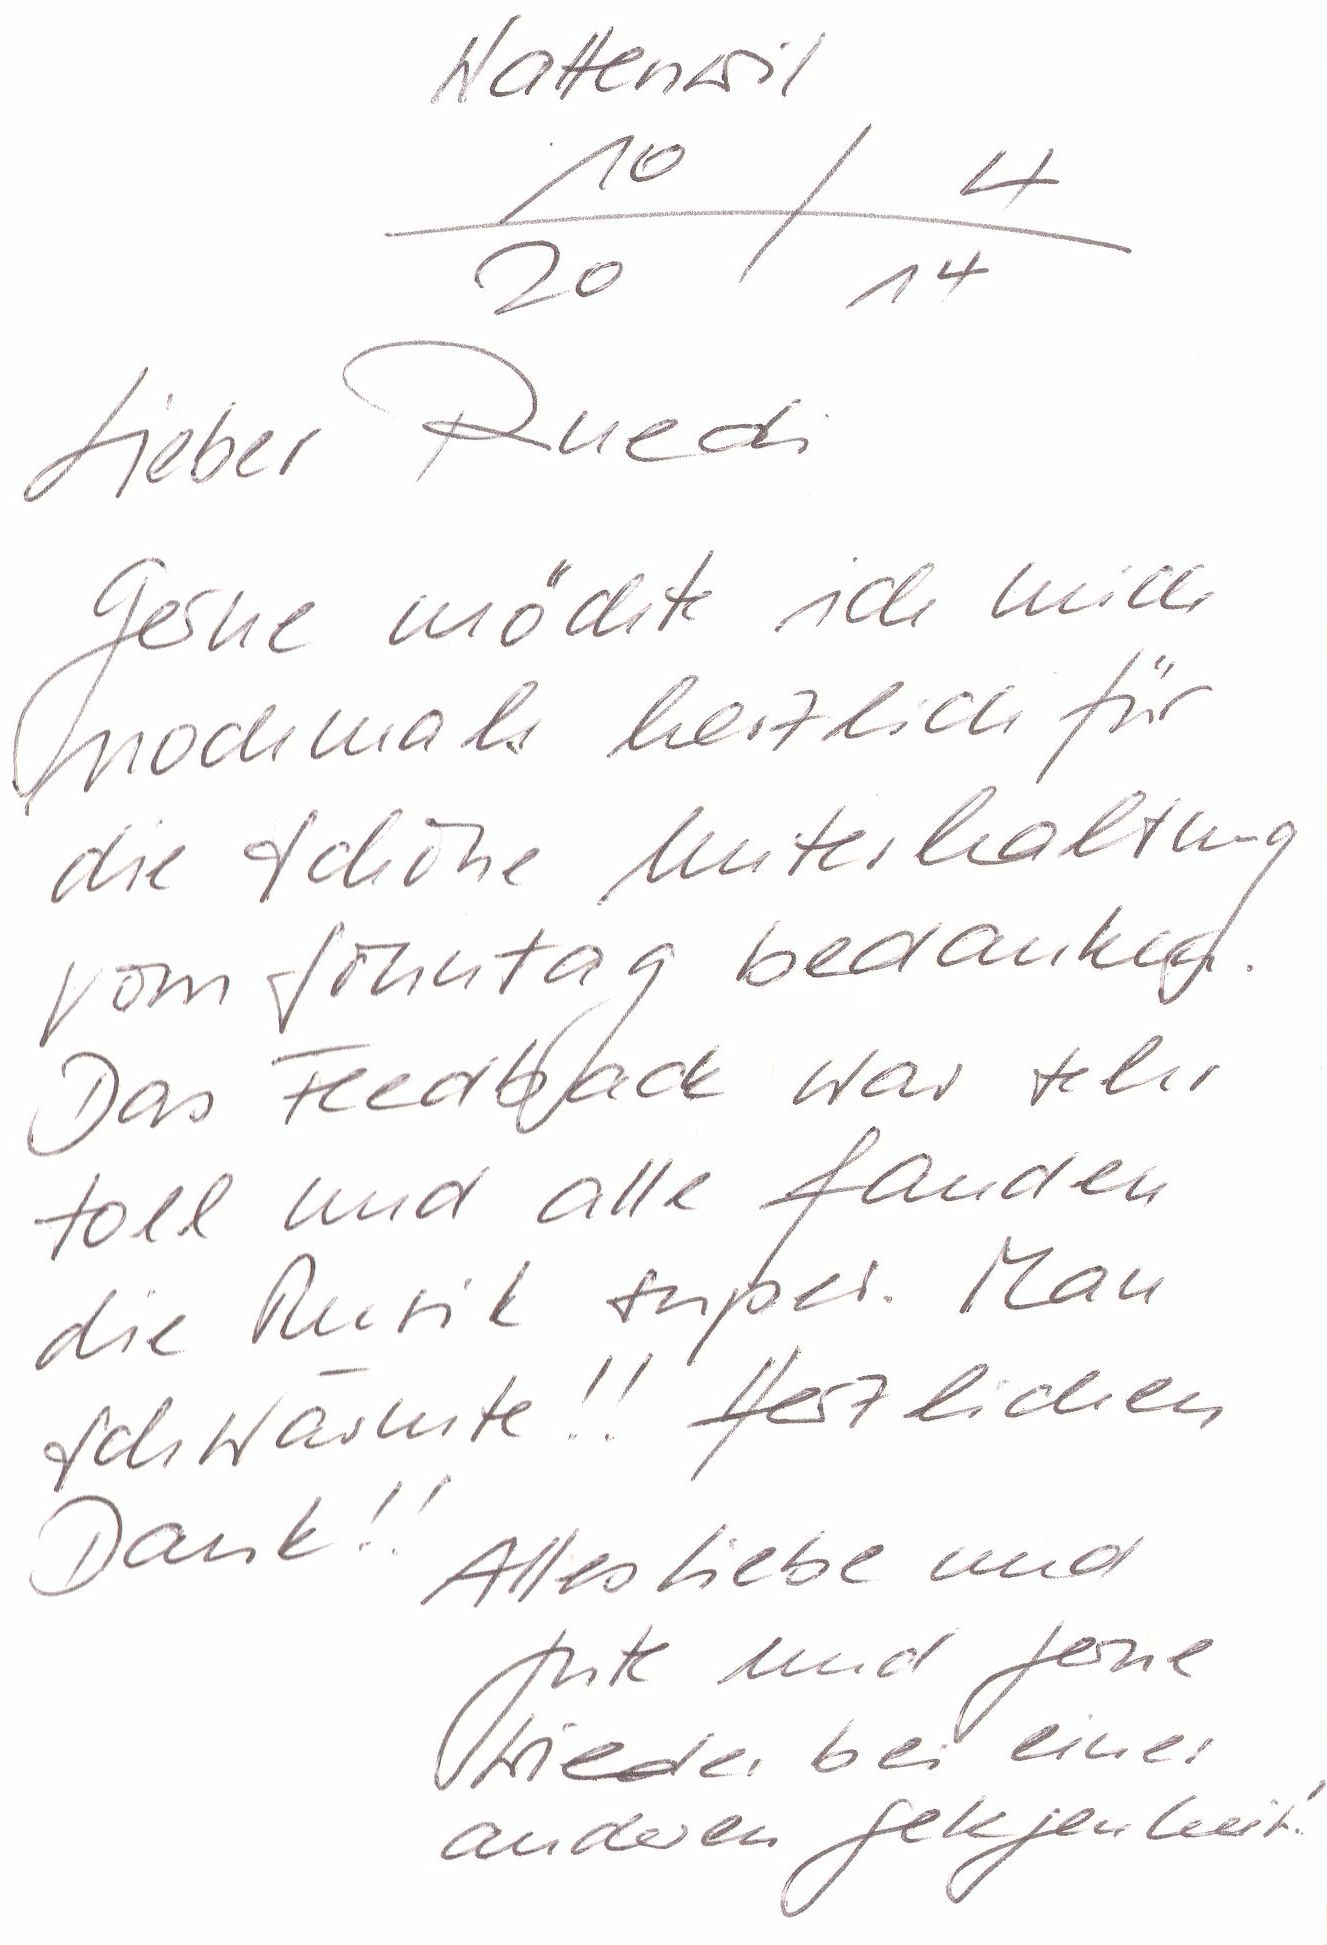 Wattenwil
10 / 4
20 14
Lieber Ruedi
Gerne möchte ich mich
nochmals herzlich für
die schöne Unterhaltung
vom Sonntag bedanken.
Das Feedback war sehr
toll und alle fanden
die Musik super. Man
schwärmte!! Herzlichen
Dank!!
Alles Liebe und
gute und gerne
wieder bei einer
anderen Gelegenheit!